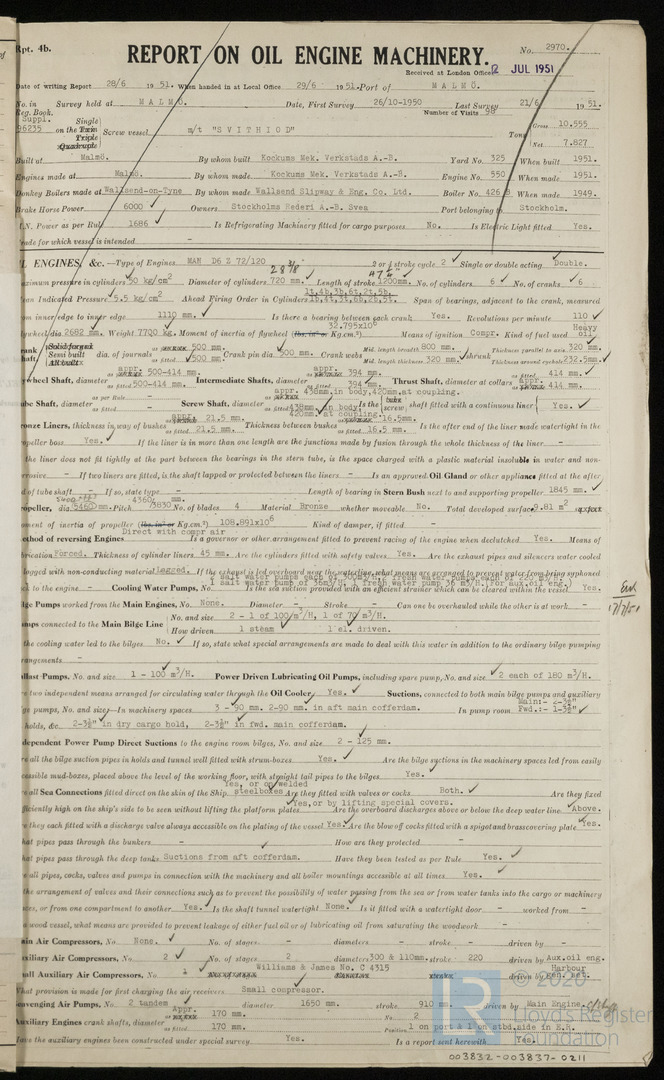 Rpt. 4b.
No. 2970.
REPORT ON OIL ENGINE MACHINERY.
Received at London Office 2 JUL 1951
Date of writing Report 28/6 1951. When handed in at Local Office 29/6 1951. Port of MALMÖ.
No. in Reg. Book. Survey held at MALMÖ. Date, First Survey 26/10-1950 Last Survey 21/6 1951.
Number of Visits 98
Suppl. 96235 on the Single Twin Triple Quadruple Screw vessel m/t "SVITHIOD" Tons Gross 10.555 Net 7.827
Built at Malmö. By whom built Kockums Mek. Verkstads A.-B. Yard No. 325 When built 1951.
Engines made at Malmö. By whom made Kockums Mek. Verkstads A.-B. Engine No. 550 When made 1951.
Donkey Boilers made at Wallsend-on-Tyne By whom made Wallsend Slipway & Eng. Co. Ltd. Boiler No. 426 B When made 1949.
Brake Horse Power 6000 Owners Stockholms Rederi A.-B. Svea Port belonging to Stockholm.
N. Power as per Rule 1686 Is Refrigerating Machinery fitted for cargo purposes No. Is Electric Light fitted Yes.
Trade for which vessel is intended
OIL ENGINES, &c. —Type of Engines MAN D6 Z 72/120 2 or 4 stroke cycle 2 Single or double acting Double.
28 3/8 47 1/4
Maximum pressure in cylinders 50 kg/cm2 Diameter of cylinders 720 mm. Length of stroke 1200mm. No. of cylinders 6 No. of cranks 6
Mean Indicated Pressure 5.5 kg/cm2 Ahead Firing Order in Cylinders 1t,4b,3b,6t,2t,5b, 1b,4t,3t,6b,2b,5t. Span of bearings, adjacent to the crank, measured
from inner edge to inner edge 1110 mm. Is there a bearing between each crank Yes. Revolutions per minute 110
Flywheel dia. 2682 mm. Weight 7700 kg. Moment of inertia of flywheel (lbs. in2 or Kg.cm.2) 32.795x10^6 Means of ignition Compr. Kind of fuel used Heavy oil.
Crank Shaft, Solid forged Semi built All built dia. of journals as per Rule 500 mm. as fitted 500 mm. Crank pin dia. 500 mm. Crank webs Mid. length breadth 800 mm. Mid. length thickness 320 mm. shrunk Thickness parallel to axis 320 mm. Thickness around eyehole 232.5mm.
Flywheel Shaft, diameter appr. 500-414 mm. as fitted 500-414 mm. Intermediate Shafts, diameter appr. 394 mm. as fitted 394 mm. Thrust Shaft, diameter at collars as fitted 414 mm. appr. 414 mm.
Tube Shaft, diameter as per Rule - as fitted - Screw Shaft, diameter appr. 438mm.in body,420mm.at coupling. as fitted 438mm.in body 420mm.at coupling. Is the tube screw shaft fitted with a continuous liner Yes.
Bronze Liners, thickness in way of bushes appr. 21.5 mm. as fitted 21.5 mm. Thickness between bushes 16.5mm. as fitted 16.5 mm. Is the after end of the liner made watertight in the
propeller boss Yes. If the liner is in more than one length are the junctions made by fusion through the whole thickness of the liner -
If the liner does not fit tightly at the part between the bearings in the stern tube, is the space charged with a plastic material insoluble in water and non-
corrosive - If two liners are fitted, is the shaft lapped or protected between the liners - Is an approved Oil Gland or other appliance fitted at the after
end of tube shaft - If so, state type - Length of bearing in Stern Bush next to and supporting propeller 1845 mm.
Propeller, dia. 5460 mm. Pitch 4360 3830 mm. No. of blades 4 Material Bronze whether moveable No. Total developed surface 9.81 m2 sq. feet
Moment of inertia of propeller (lbs. in2 or Kg.cm.2) 108.891x10^6 Kind of damper, if fitted -
Method of reversing Engines Direct with compr air Is a governor or other arrangement fitted to prevent racing of the engine when declutched Yes. Means of
lubrication Forced. Thickness of cylinder liners 45 mm. Are the cylinders fitted with safety valves Yes. Are the exhaust pipes and silencers water cooled
or lagged with non-conducting material Lagged. If the exhaust is led overboard near the waterline, what means are arranged to prevent water from being syphoned
back to the engine - Cooling Water Pumps, No. 2 salt water pumps each of 300m3/H, 2 fresh water pumps each of 220 m3/H. 1 salt water pump of 36m3/H, 1 fresh water pump 36 m3/H.(For aux.oil eng.) Is the sea suction provided with an efficient strainer which can be cleared within the vessel Yes.
Bilge Pumps worked from the Main Engines, No. None. Diameter - Stroke - Can one be overhauled while the other is at work -
Pumps connected to the Main Bilge Line No. and size 2 - 1 of 100m3/H, 1 of 70m3/H.
How driven 1 steam 1 el. driven.
Is the cooling water led to the bilges No. If so, state what special arrangements are made to deal with this water in addition to the ordinary bilge pumping
arrangements -
Ballast Pumps, No. and size 1 - 100 m3/H. Power Driven Lubricating Oil Pumps, including spare pump, No. and size 2 each of 180 m3/H.
Are two independent means arranged for circulating water through the Oil Cooler Yes. Suctions, connected to both main bilge pumps and auxiliary
bilge pumps, No. and size:—In machinery spaces 3 - 90 mm. 2-90 mm. in aft main cofferdam. In pump room Main:- 2-3½" Fwd.:- 1-3½"
In holds, &c. 2-3½" in dry cargo hold, 2-3½" in fwd. main cofferdam.
Independent Power Pump Direct Suctions to the engine room bilges, No. and size 2 - 125 mm.
Are all the bilge suction pipes in holds and tunnel well fitted with strum-boxes Yes. Are the bilge suctions in the machinery spaces led from easily
accessible mud-boxes, placed above the level of the working floor, with straight tail pipes to the bilges Yes.
Are all Sea Connections fitted direct on the skin of the Ship Yes, or on welded steelboxes Are they fitted with valves or cocks Both. Are they fixed
sufficiently high on the ship's side to be seen without lifting the platform plates Yes,or by lifting special covers. Are the overboard discharges above or below the deep water line Above.
Are they each fitted with a discharge valve always accessible on the plating of the vessel Yes. Are the blow off cocks fitted with a spigot and brass covering plate Yes.
What pipes pass through the bunkers - How are they protected -
What pipes pass through the deep tanks Suctions from aft cofferdam. Have they been tested as per Rule Yes.
Are all pipes, cocks, valves and pumps in connection with the machinery and all boiler mountings accessible at all times Yes.
Is the arrangement of valves and their connections such as to prevent the possibility of water passing from the sea or from water tanks into the cargo or machinery
spaces, or from one compartment to another Yes. Is the shaft tunnel watertight None. Is it fitted with a watertight door - worked from -
If a wood vessel, what means are provided to prevent leakage of either fuel oil or of lubricating oil from saturating the woodwork -
Main Air Compressors, No. None. No. of stages - diameters - stroke - driven by -
Auxiliary Air Compressors, No. 2 No. of stages 2 diameters 300 & 110mm. stroke 220 driven by Aux.oil eng.
Small Auxiliary Air Compressors, No. 1 Williams & James No. C 4315 driven by Harbour Gen. set.
What provision is made for first charging the air receivers Small compressor.
Scavenging Air Pumps, No. 2 tandem diameter 1650 mm. stroke 910 mm. driven by Main Engine.
Auxiliary Engines crank shafts, diameter Appr. 170 mm. as fitted 170 mm. No. 2 Position 1 on port & 1 on stbd.side in E.R.
Have the auxiliary engines been constructed under special survey Yes. Is a report sent herewith Yes.
© 2020
LR
Lloyd's Register
Foundation
003832-003837-0211